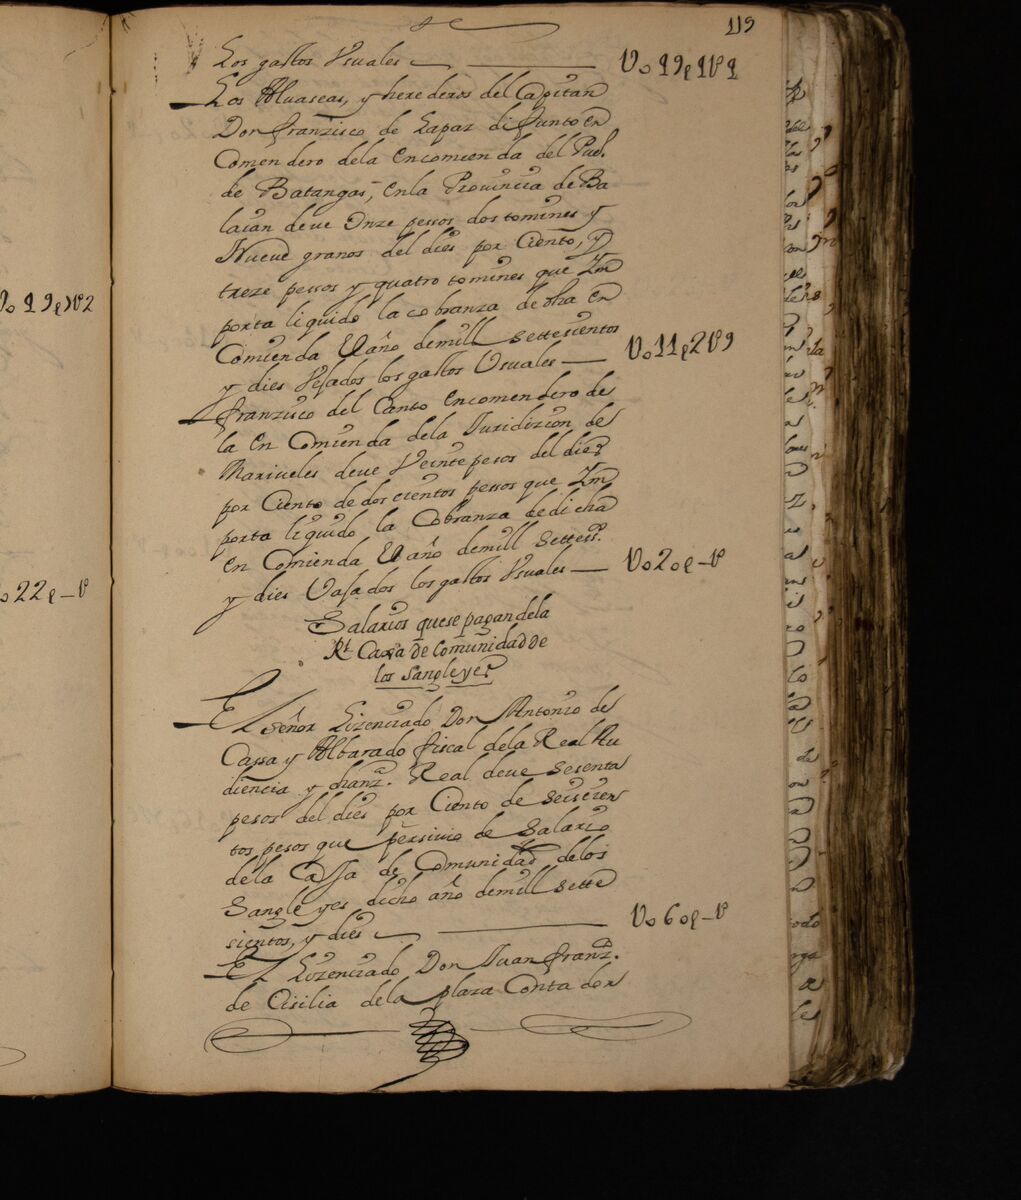 119
Los gastos Vsuales — U o 99 p 1 U 9
Los Albaseas, y herederos del Capitan
Don franzisco de Lapaz difunto en
Comendero dela encomienda del Pueb.
de Batangas, en la Prouinzia de Ba
laian deve Onze pessos dos tomines y
Nueve granos del dies por Ciento, de
treze pessos y quatro tomines que Im
porta liquido la cobranza de dha en
Comienda El año de mill settesientos
y dies Vajados los gastos Usuales — U o 11 p 2 U 9
Franzisco del Canto encomendero de
la en Comienda dela Iuridizion de
Mariueles deve Veinte pesos del diez
por Ciento de dos cientos pessos que Im
porta liquido la Cobranza de dicha
en Comienda El año de mill settess.
y dies Vajados los gastos Vsuales — U o 2 o p - U
Salarios que se pagan dela
Rl. Caxa de Comunidad de
los Sangleyes
El señor Lizenciado Don Antonio de
Cassa y Albarado fiscal dela Real Au
diencia y chanz. Real deve Sesenta
pesos del dies por Ciento de seiscien
tos pesos que persiuio de Salario
dela Cassa de Comunidad delos
Sangleyes dicho año de mill sette
sientos, y dies — U o 6 o p - U
El Lizenciado Don Iuan franz.
de Cisilia dela plaza Contador
U o 99 p U 2
o 22 p - U